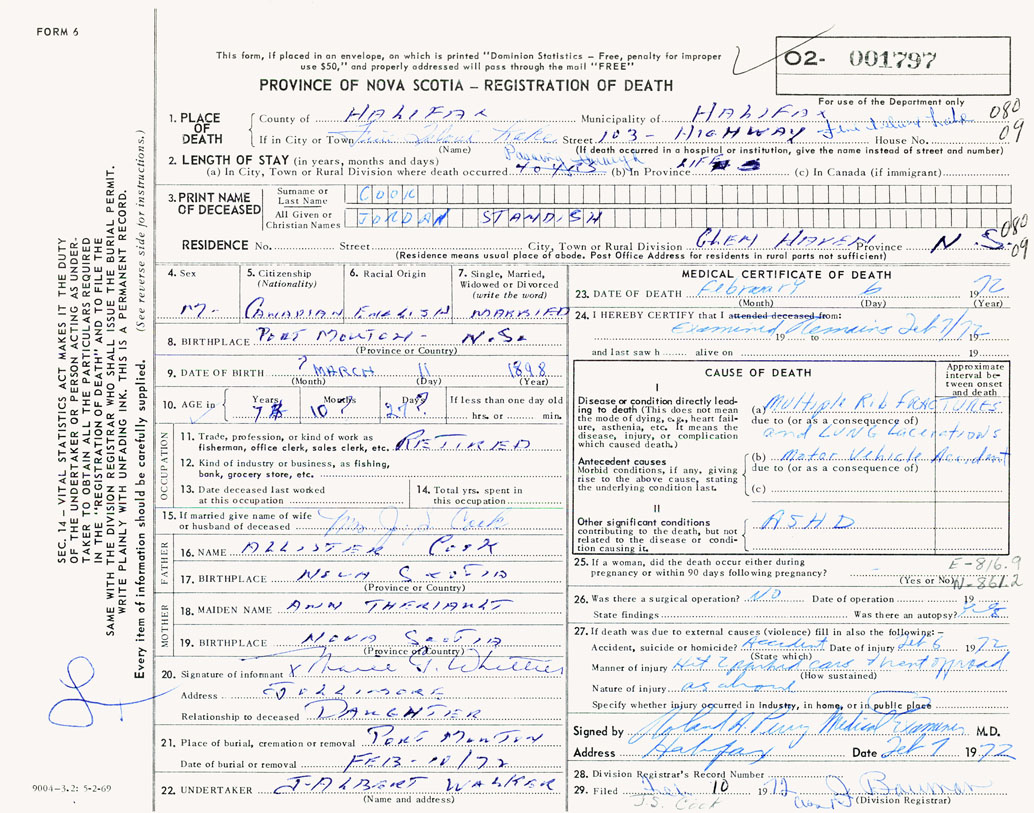 FORM 6
This form, if placed in an envelope, on which is printed "Dominion Statistics – Free, penalty for improper
use $50," and properly addressed will pass through the mail "FREE"
O2- 001797
PROVINCE OF NOVA SCOTIA – REGISTRATION OF DEATH
For use of the Department only
080
09
1. PLACE OF DEATH
County of HALIFAX Municipality of HALIFAX
If in City or Town Five Island Lake Street 103 - HIGHWAY House No. Five Island Lake
(Name) (If death occurred in a hospital or institution, give the name instead of street and number)
2. LENGTH OF STAY (in years, months and days) Passing through LIFE
(a) In City, Town or Rural Division where death occurred (b) In Province (c) In Canada (if immigrant)
3. PRINT NAME OF DECEASED
Surname or Last Name COOK
All Given or Christian Names JORDAN STANDISH
080
09
RESIDENCE No. Street City, Town or Rural Division GLEN HAVEN Province N.S.
(Residence means usual place of abode. Post Office Address for residents in rural parts not sufficient)
4. Sex
M-
5. Citizenship (Nationality)
CANADIAN
6. Racial Origin
ENGLISH
7. Single, Married, Widowed or Divorced (write the word)
MARRIED
8. BIRTHPLACE PORT MOUTON - N.S.
(Province or Country)
9. DATE OF BIRTH ? MARCH 11 1898
(Month) (Day) (Year)
10. AGE in Years Months Days If less than one day old
10? 27? hrs. or min.
OCCUPATION
11. Trade, profession, or kind of work as
fisherman, office clerk, sales clerk, etc. RETIRED
12. Kind of industry or business, as fishing,
bank, grocery store, etc.
13. Date deceased last worked
at this occupation
14. Total yrs. spent in
this occupation
15. If married give name of wife
or husband of deceased Mrs. J. S. Cook
FATHER
16. NAME ALLISTER COOK
17. BIRTHPLACE NOVA SCOTIA
(Province or Country)
MOTHER
18. MAIDEN NAME ANN THERIAULT
19. BIRTHPLACE NOVA SCOTIA
(Province or Country)
20. Signature of informant x Marie J. Whittier
Address JOLLIMORE
Relationship to deceased DAUGHTER
21. Place of burial, cremation or removal PORT MOUTON
Date of burial or removal FEB-10/72
22. UNDERTAKER J-ALBERT WALKER
(Name and address)
MEDICAL CERTIFICATE OF DEATH
23. DATE OF DEATH February 6 1972
(Month) (Day) (Year)
24. I HEREBY CERTIFY that I attended deceased from:
Examined Remains Feb 7/72
19 to 19
and last saw h alive on 19
CAUSE OF DEATH
Approximate interval between onset and death
I
Disease or condition directly leading to death (This does not mean the mode of dying, e.g., heart failure, asthenia, etc. It means the disease, injury, or complication which caused death.)
(a) Multiple Rib FRACTURES
due to (or as a consequence of)
and LUNG Lacerations
Antecedent causes
Morbid conditions, if any, giving rise to the above cause, stating the underlying condition last.
(b) Motor Vehicle Accident
due to (or as a consequence of)
(c)
II
Other significant conditions contributing to the death, but not related to the disease or condition causing it.
ASHD
25. If a woman, did the death occur either during
pregnancy or within 90 days following pregnancy?
(Yes or No)
E-816.9
N-861.2
26. Was there a surgical operation? NO Date of operation 19
State findings Was there an autopsy? Yes
27. If death was due to external causes (violence) fill in also the following: –
Accident, suicide or homicide? Accident Date of injury Feb 6 1972
(State which)
Manner of injury Hit 2 parked cars then off road
(How sustained)
Nature of injury as above
Specify whether injury occurred in Industry, in home, or in public place
Signed by Roland A. Perry Medical Examiner M.D.
Address Halifax Date Feb 7 1972
28. Division Registrar's Record Number
29. Filed 10 1972 J. Bauman
J.S. Cook (Division Registrar)
SEC. 14 – VITAL STATISTICS ACT MAKES IT THE DUTY
OF THE UNDERTAKER OR PERSON ACTING AS UNDER-
TAKER TO OBTAIN ALL THE PARTICULARS REQUIRED
IN THE "REGISTRATION OF DEATH" AND TO FILE THE
SAME WITH THE DIVISION REGISTRAR WHO SHALL ISSUE THE BURIAL PERMIT.
WRITE PLAINLY WITH UNFADING INK. THIS IS A PERMANENT RECORD.
Every item of information should be carefully supplied. (See reverse side for instructions.)
9004-3.2: 5-2-69